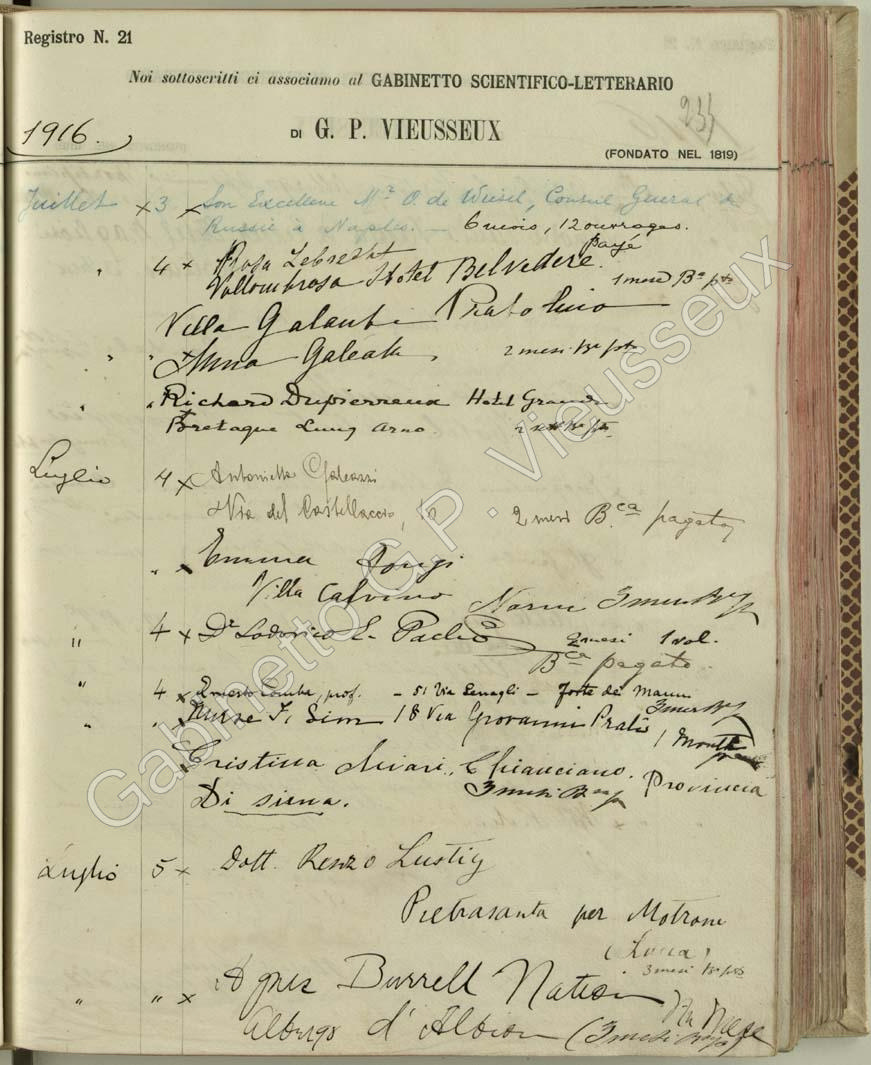 Registro N. 21
Noi sottoscritti ci associamo al GABINETTO SCIENTIFICO-LETTERARIO
1916.
DI G. P. VIEUSSEUX
(FONDATO NEL 1819)
Juillet x 3 x Son Excellence Mr O. de Wiesel, Consul General de
Russie à Naples. — 6 mois, 12 ouvrages.
Payé
" 4 x Rosa Lebrecht
Vallombrosa Hotel Belvedere. 1 mese Ba
Villa Galanti Pratolino
" " Anna Galeata, 2 mesi Ba
" " Richard Dupierreux Hotel Grande
Bretagne Lung Arno.
Luglio 4 x Antonietta Galeazzi
Via del Castellaccio, 2 mesi Bca pagato
" x Emma
Villa Calvino 3 mesi
" 4 x Dr Lodovico E. 2 mesi 1 vol.
Bca pagato.
" 4 x Ernesto Comba, prof. – 51 Via – Forte dei Marmi
3 mesi
" " Nurse F. Sim 18 Via Giovanni Prati
1 Month
Cristina Miari, Chianciano. Provincia
3 mesi
Di siena.
Luglio 5 x Dott. Renzo Lustig
Pietrasanta per Motrone
(Lucca)
3 mesi
" " x Agnes Burrell Nation
Albergo d'Albion (3 mesi
Gabinetto G.P. Vieusseux